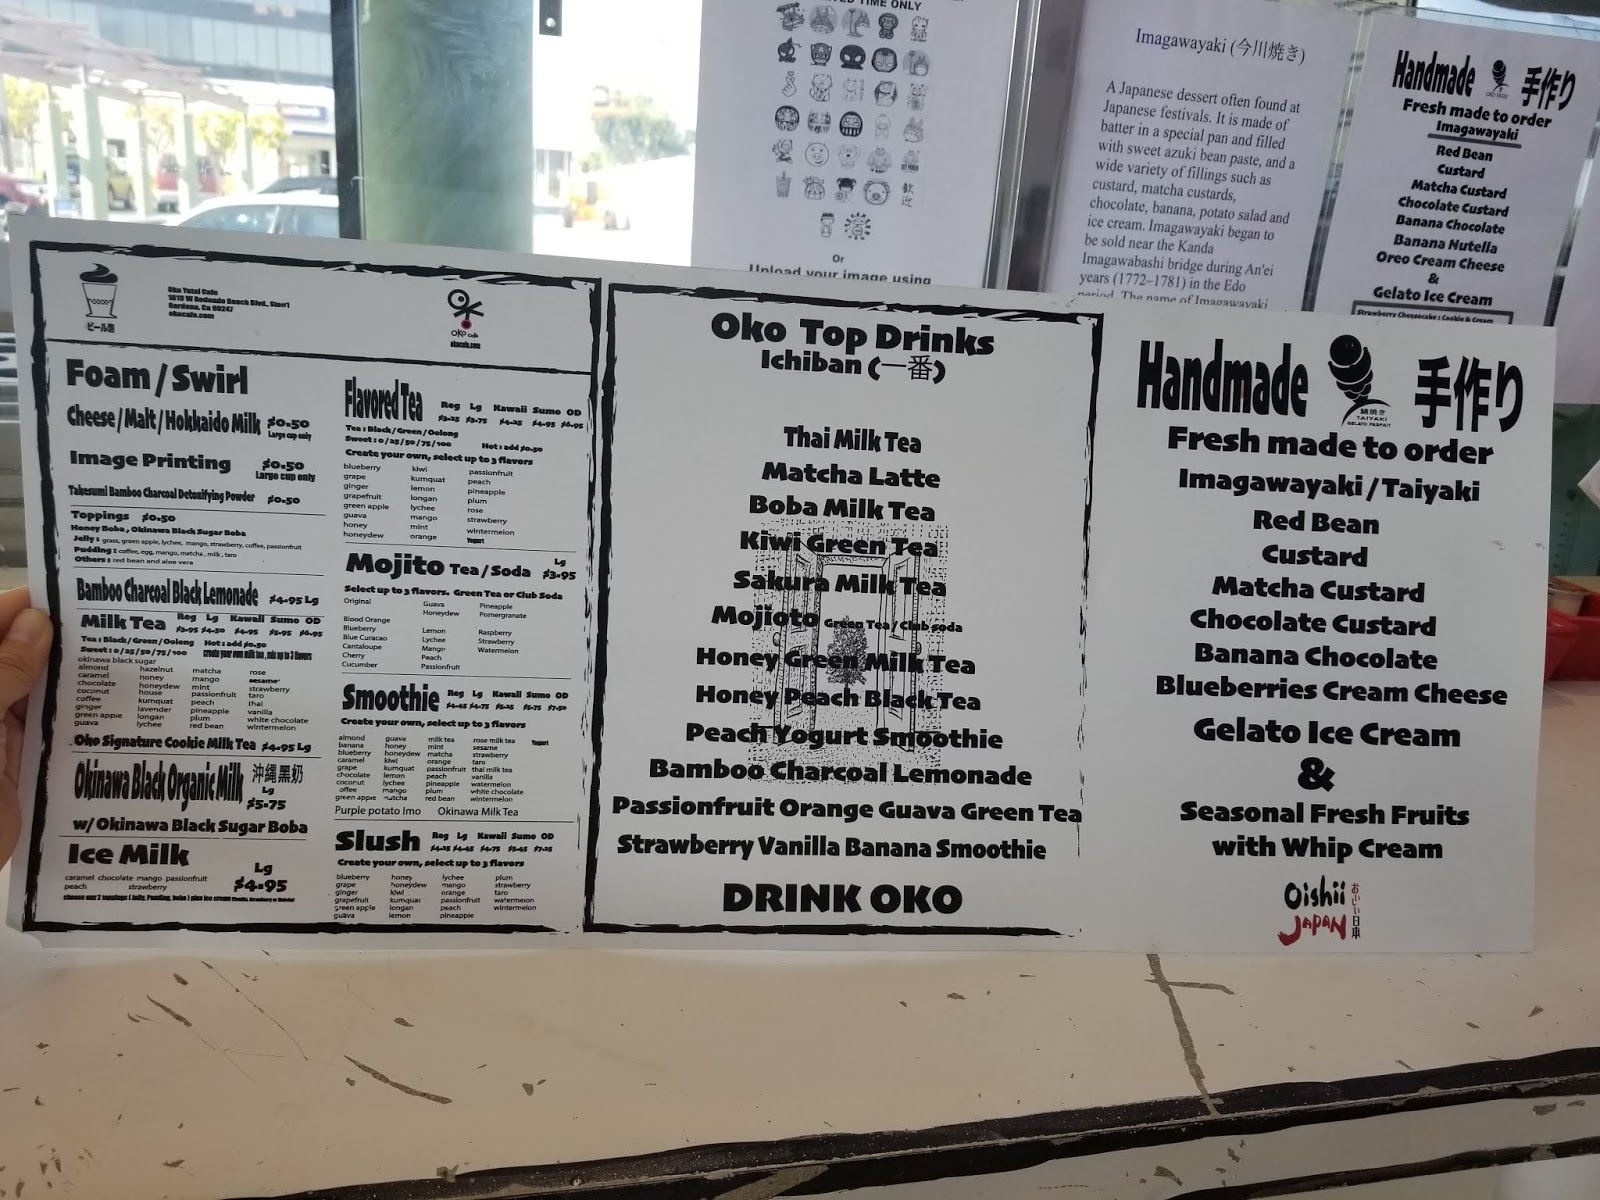 TIME ONLY
歓
迎
Or
Upload your image using
Imagawayaki (今川焼き)
A Japanese dessert often found at
Japanese festivals. It is made of
batter in a special pan and filled
with sweet azuki bean paste, and a
wide variety of fillings such as
custard, matcha custards,
chocolate, banana, potato salad and
ice cream. Imagawayaki began to
be sold near the Kanda
Imagawabashi bridge during An'ei
years (1772–1781) in the Edo
period. The name of Imagawayaki
Handmade 手作り
Fresh made to order
Imagawayaki
Red Bean
Custard
Matcha Custard
Chocolate Custard
Banana Chocolate
Banana Nutella
Oreo Cream Cheese
&
Gelato Ice Cream
Strawberry Cheesecake : Cookie & Cream
Oko Total Cafe
1610 W Redondo Beach Blvd., Ste#1
Gardena, Ca 90247
okocafe.com
OKO cafe
okocafe.com
Foam / Swirl
Cheese / Malt / Hokkaido Milk $0.50
Large cup only
Image Printing $0.50
Large cup only
Takesumi Bamboo Charcoal Detoxifying Powder $0.50
Toppings $0.50
Honey Boba , Okinawa Black Sugar Boba
Jelly : grass, green apple, lychee, mango, strawberry, coffee, passionfruit
Pudding : coffee, egg, mango, matcha , milk , taro
Others : red bean and aloe vera
Bamboo Charcoal Black Lemonade $4.95 Lg
Milk Tea Reg Lg Kawaii Sumo OD
$3.95 $4.50 $4.95 $5.95 $6.95
Tea : Black / Green / Oolong Hot : add $0.50
Sweet : 0 / 25 / 50 / 75 / 100 create your own milk tea , mix up to 3 flavors
okinawa black sugar
almond hazelnut matcha rose
caramel honey mango sesame
chocolate honeydew mint strawberry
coconut house passionfruit taro
coffee kumquat peach thai
ginger lavender pineapple vanilla
green apple longan plum white chocolate
guava lychee red bean wintermelon
Oko Signature Cookie Milk Tea $4.95 Lg
Okinawa Black Organic Milk 沖縄黑奶
Lg
$5.75
w/ Okinawa Black Sugar Boba
Ice Milk Lg
$4.95
caramel chocolate mango passionfruit
peach strawberry
Flavored Tea Reg Lg Kawaii Sumo OD
$3.25 $3.75 $4.25 $4.95 $6.95
Tea : Black / Green / Oolong
Sweet : 0 / 25 / 50 / 75 / 100 Hot : add $0.50
Create your own, select up to 3 flavors
blueberry kiwi passionfruit
grape kumquat peach
ginger lemon pineapple
grapefruit longan plum
green apple lychee rose
guava mango strawberry
honey mint wintermelon
honeydew orange Yogurt
Mojito Tea / Soda Lg
$3.95
Select up to 3 flavors. Green Tea or Club Soda
Original Guava Pineapple
Honeydew Pomergranate
Blood Orange
Blueberry Lemon Raspberry
Blue Curacao Lychee Strawberry
Cantaloupe Mango Watermelon
Cherry Peach
Cucumber Passionfruit
Smoothie Reg Lg Kawaii Sumo OD
$4.45 $4.75 $5.25 $5.75 $7.50
Create your own, select up to 3 flavors
almond guava milk tea rose milk tea Yogurt
banana honey mint sesame
blueberry honeydew matcha strawberry
caramel kiwi orange taro
grape kumquat passionfruit thai milk tea
chocolate lemon peach vanilla
coconut lychee pineapple watermelon
coffee mango plum white chocolate
green apple matcha red bean wintermelon
Purple potato Imo Okinawa Milk Tea
Slush Reg Lg Kawaii Sumo OD
$4.25 $4.45 $4.75 $5.45 $7.25
Create your own, select up to 3 flavors
blueberry honey lychee plum
grape honeydew mango strawberry
ginger kiwi orange taro
grapefruit kumquat passionfruit watermelon
green apple longan peach wintermelon
guava lemon pineapple
Oko Top Drinks
Ichiban (一番)
Thai Milk Tea
Matcha Latte
Boba Milk Tea
Kiwi Green Tea
Sakura Milk Tea
Mojioto Green Tea / Club soda
Honey Green Milk Tea
Honey Peach Black Tea
Peach Yogurt Smoothie
Bamboo Charcoal Lemonade
Passionfruit Orange Guava Green Tea
Strawberry Vanilla Banana Smoothie
DRINK OKO
Handmade 手作り
鯛焼き
TAIYAKI
GELATO PARFAIT
Fresh made to order
Imagawayaki / Taiyaki
Red Bean
Custard
Matcha Custard
Chocolate Custard
Banana Chocolate
Blueberries Cream Cheese
Gelato Ice Cream
&
Seasonal Fresh Fruits
with Whip Cream
Oishii
JAPAN
おいしい日本